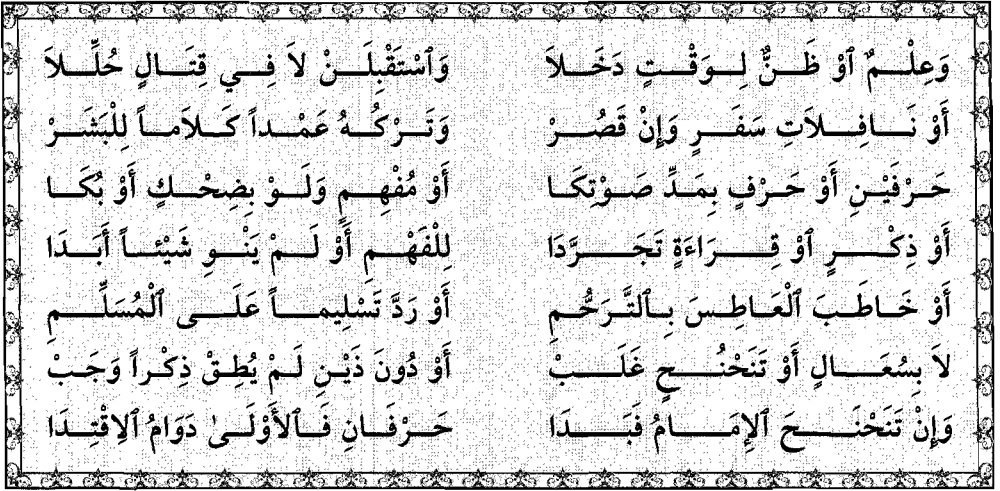 وَعِلْمٌ ٱوْ ظَنٌّ لِوَقْتٍ دَخَلاَ وَٱسْتَقْبِلَنْ لاَ فِي قِتَالٍ حُلِّلاَ
أَوْ نَافِلاَتِ سَفَرٍ وَإِنْ قَصُرْ وَتَرْكُهُ عَمْداً كَلاَماً لِلْبَشَرْ
حَرْفَيْنِ أَوْ حَرْفٍ بِمَدِّ صَوْتِكَا أَوْ مُفْهِمٍ وَلَوْ بِضِحْكٍ أَوْ بُكَا
أَوْ ذِكْرٍ ٱوْ قِرَاءَةٍ تَجَرَّدَا لِلْفَهْمِ أَوْ لَمْ يَنْوِ شَيْئاً أَبَدَا
أَوْ خَاطَبَ ٱلْعَاطِسَ بِٱلتَّرَحُّمِ أَوْ رَدَّ تَسْلِيماً عَلَى ٱلْمُسَلِّمِ
لاَ بِسُعَالٍ أَوْ تَنَحْنُحٍ غَلَبْ أَوْ دُونَ ذَيْنِ لَمْ يُطِقْ ذِكْراً وَجَبْ
وَإِنْ تَنَحْنَحَ ٱلإِمَامُ فَبَدَا حَرْفَانِ فَٱلأَوْلَىٰ دَوَامُ ٱلاِقْتِدَا